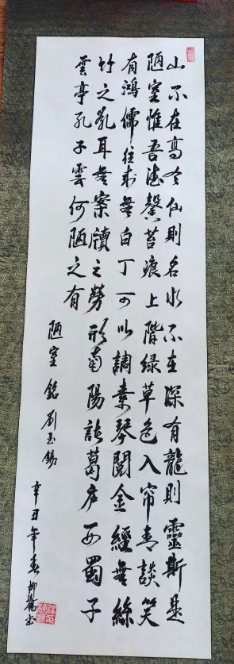 山不在高有仙則名水不在深有龍則靈斯是
陋室惟吾德馨苔痕上階綠草色入帘青談笑
有鴻儒往來無白丁可以調素琴閱金經無絲
竹之亂耳無案牘之勞形南陽諸葛廬西蜀子
雲亭孔子雲何陋之有
陋室銘 劉禹錫
辛丑年春
書